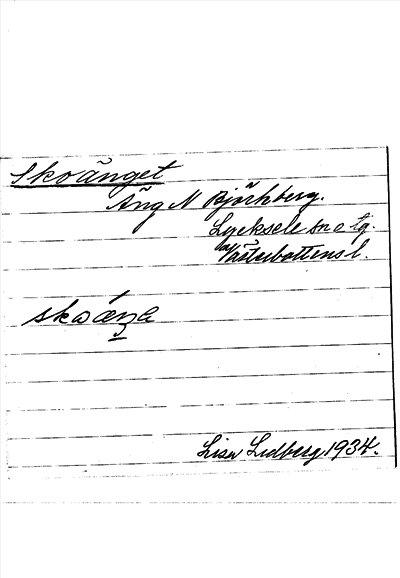 Skoänget
Äng N Björkberg.
Lycksele sn o lg.
Västerbottens l.
skoáŋ̱a
Lisa Lidberg 1934.